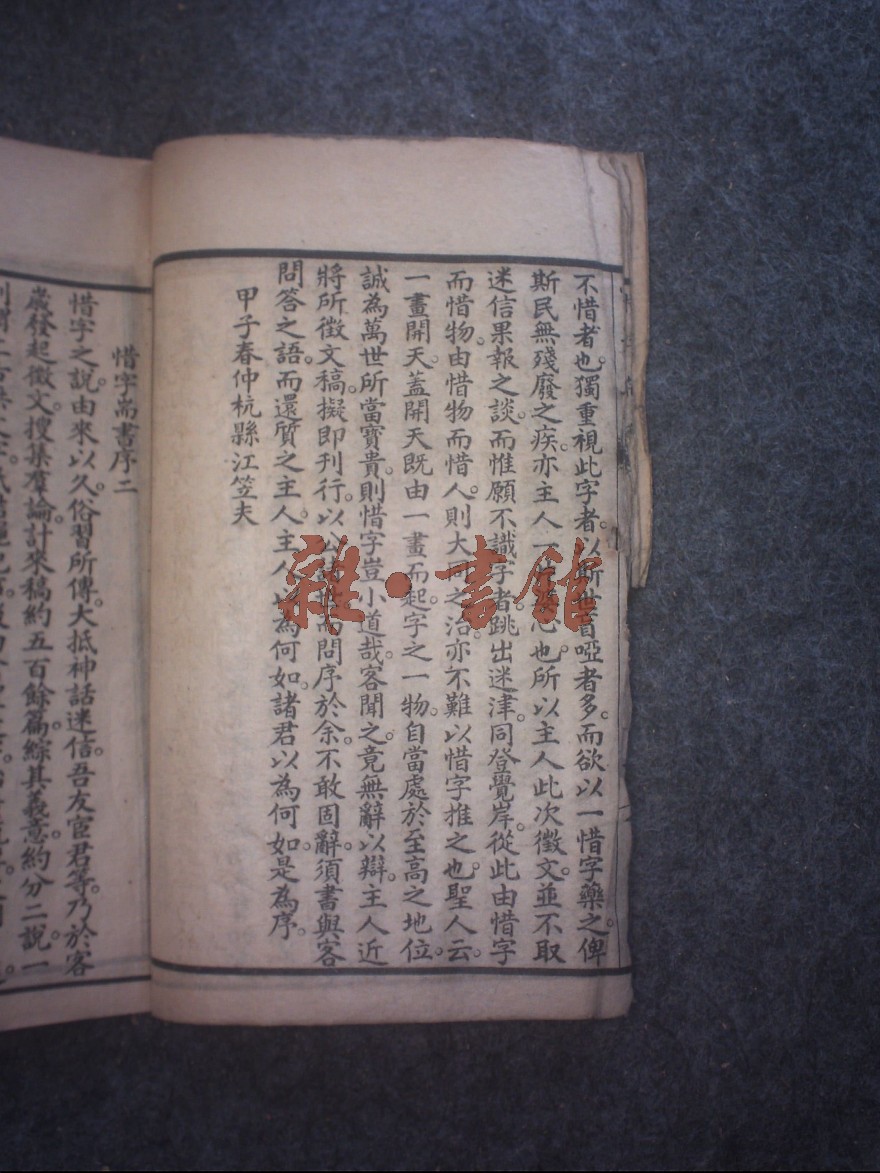 不惜者也。獨重視此字者。以斯世盲啞者多。而欲以一惜字藥之。俾
斯民無殘廢之疾。亦主人一心也。所以主人此次徵文。並不取
迷信果報之談。而惟願不識字者。跳出迷津。同登覺岸。從此由惜字
而惜物。由惜物而惜人。則大同之治。亦不難以惜字推之也。聖人云。
一畫開天。蓋開天既由一畫而起。字之一物。自當處於至高之地位。
誠為萬世所當寶貴。則惜字豈小道哉。客聞之。竟無辭以辯。主人近
將所徵文稿。擬即刊行。以公問序於余。不敢固辭。須書與客
問答之語。而還質之主人。主人以為何如。諸君以為何如。是為序。
甲子春仲杭縣江笠夫
惜字嵩書序二
惜字之說。由來以久。俗習所傳。大抵神話迷信。吾友宦君等。乃於客
歲發起徵文。搜集羣論。計來稿約五百餘篇。綜其義意。約分二說。一
雜·書館